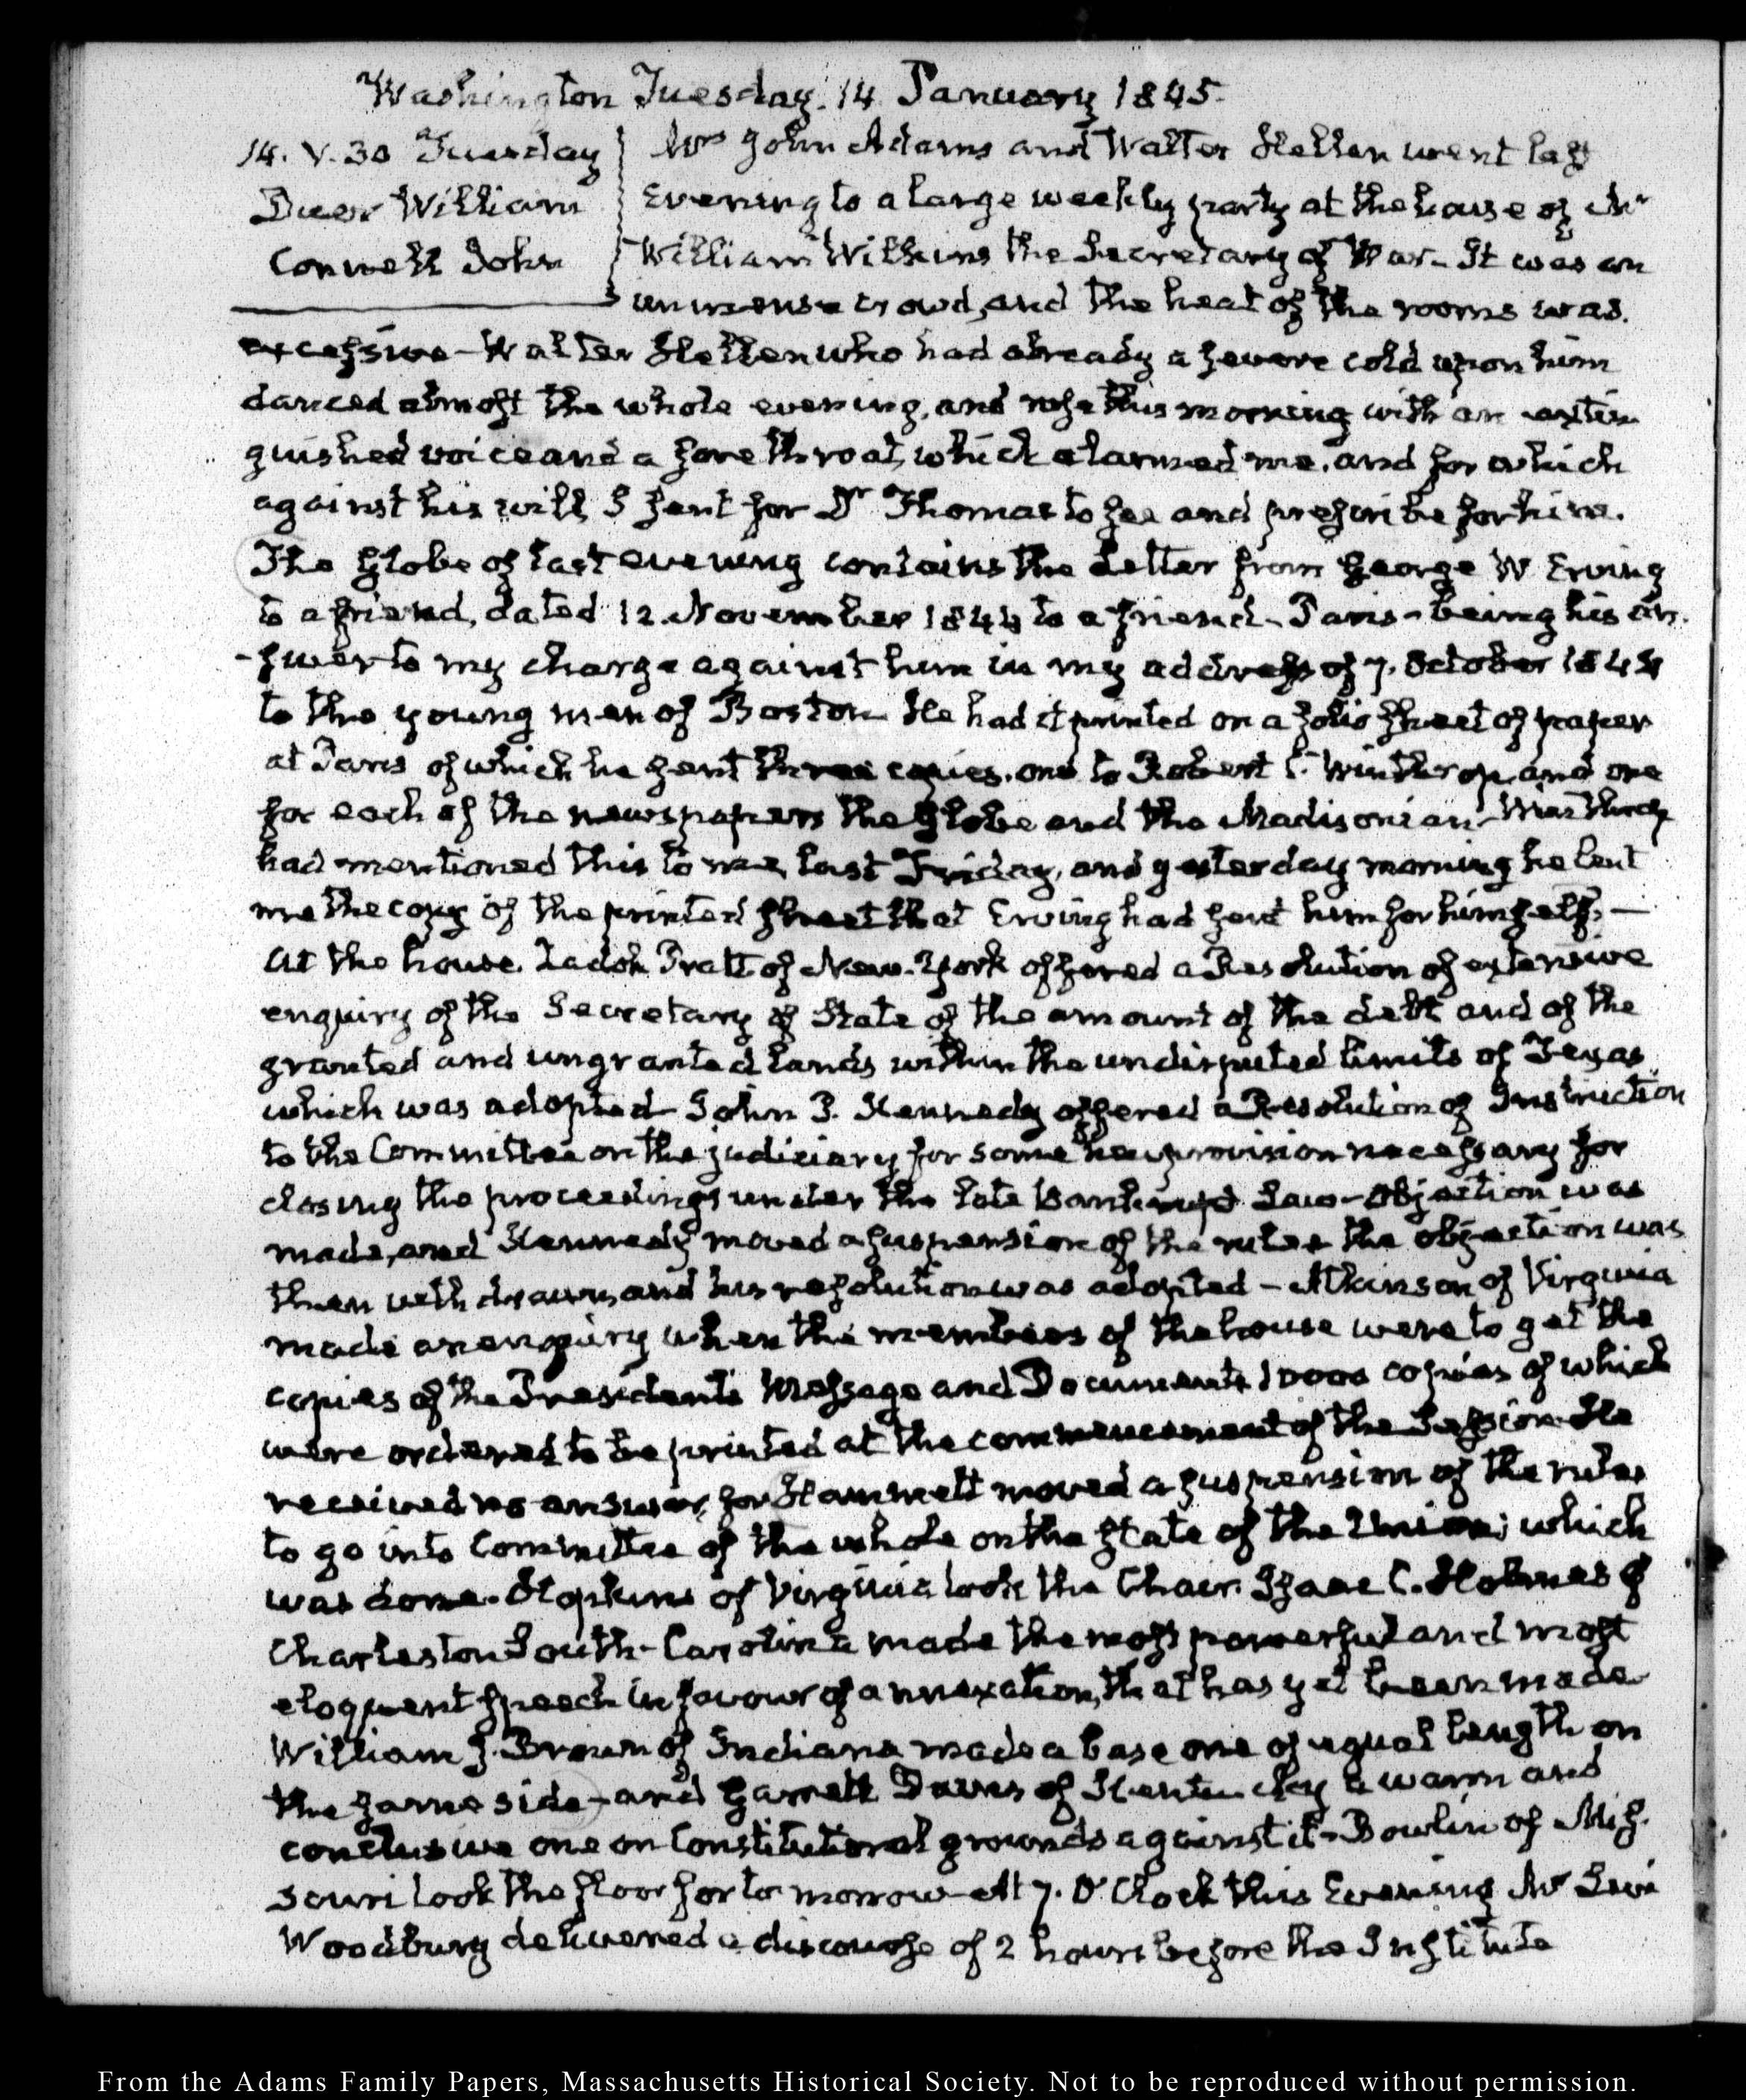 Washington Tuesday. 14 January 1845.
14. V.30 Tuesday
Duer William
Connell John
Mrs John Adams and Walter Hellen went last
Evening to a large weekly party at the house of Mr
William Wilkins the Secretary of War. It was an
immense crowd, and the heat of the rooms was.
excessive - Walter Hellen who had already a severe cold upon him
danced almost the whole evening, and rose this morning with an extin
guished voice and a sore throat, which alarmed me, and for which
against his will, I sent for Dr Thomas to see and prescribe for him.
The Globe of last evening contains the Letter from George W Erving
to a friend, dated 12. November 1844 to a friend - Paris - being his an.
-swer to my charge against him in my address of 7. October 1844
to the young men of Boston He had it printed on a folio sheet of paper
at Paris of which he sent three copies. one to Robert C. Winthrop, and one
for each of the newspapers the Globe and the Madisonian - Winthrop
had mentioned this to me last Friday, and yesterday morning he lent
me the copy of the printed sheet that Erving had sent him for himself. —
At the house. Zadok Pratt of New-York offered a Resolution of extensive
enquiry of the Secretary of State of the amount of the debt and of the
granted and ungranted lands within the undisputed limits of Texas
which was adopted - John P. Kennedy offered a Resolution of Instruction
to the Committee on the judiciary for some new provision necessary for
closing the proceedings under the late Bankrupt Law - Objection was
made, and Kennedy moved a suspension of the rules the objection was
then withdrawn, and his resolution was adopted - Atkinson of Virginia
made an enquiry when the members of the house were to get the
copies of the Presidents Message and Documents 10000 copies of which
were ordered to be printed at the commencement of the Session. He
received no answer, for Hammett moved a suspension of the rules
to go into Committee of the whole on the state of the Union; which
was done. Hopkins of Virginia took the Chair. Isaac C. Holmes of
Charleston South-Carolina made the most powerful and most
eloquent speech in favour of annexation, that has yet been made
William J. Brown of Indiana made a base one of equal length on
the same side - and Garrett Davis of Kentucky a warm and
conclusive one on Constitutional grounds against it - Bowlin of Mis.
souri took the floor for to morrow - At 7. O'Clock this Evening Mr Levi
Woodbury delivered a discourse of 2 hours before the Institute
From the Adams Family Papers, Massachusetts Historical Society. Not to be reproduced without permission.